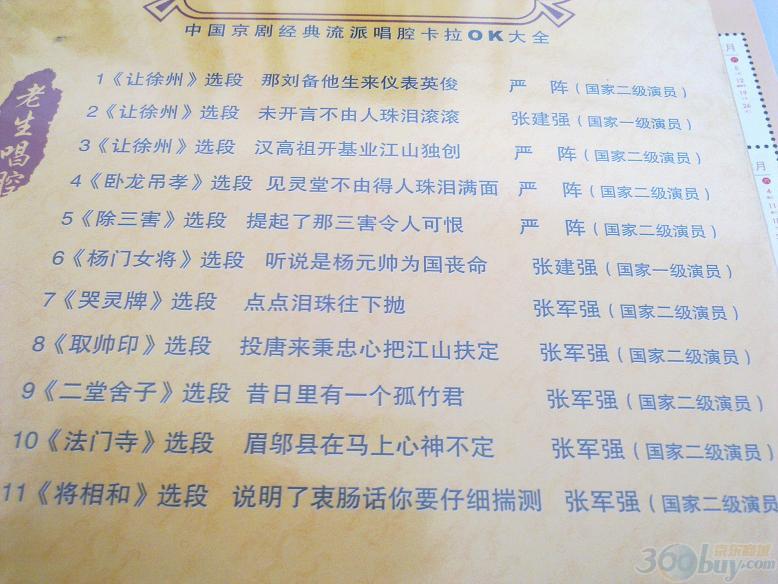 中国京剧经典流派唱腔卡拉OK大全
老生唱腔
1《让徐州》选段 那刘备他生来仪表英俊 严 阵（国家二级演员）
2《让徐州》选段 未开言不由人珠泪滚滚 张建强（国家一级演员）
3《让徐州》选段 汉高祖开基业江山独创 严 阵（国家二级演员）
4《卧龙吊孝》选段 见灵堂不由得人珠泪满面 严 阵（国家二级演员）
5《除三害》选段 提起了那三害令人可恨 严 阵（国家二级演员）
6《杨门女将》选段 听说是杨元帅为国丧命 张建强（国家一级演员）
7《哭灵牌》选段 点点泪珠往下抛 张军强（国家二级演员）
8《取帅印》选段 投唐来秉忠心把江山扶定 张军强（国家二级演员）
9《二堂舍子》选段 昔日里有一个孤竹君 张军强（国家二级演员）
10《法门寺》选段 眉邬县在马上心神不定 张军强（国家二级演员）
11《将相和》选段 说明了衷肠话你要仔细揣测 张军强（国家二级演员
月
月
京东商城
360buy.com